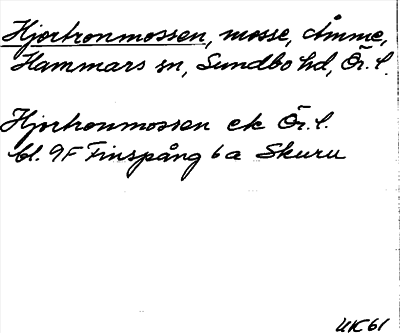 Hjortronmossen, mosse, Åmme,
Hammars sn, Sundbo hd, Ör. l.
Hjortronmossen ek Ör. l.
bl. 9F Finspång 6a Skuru
UK61